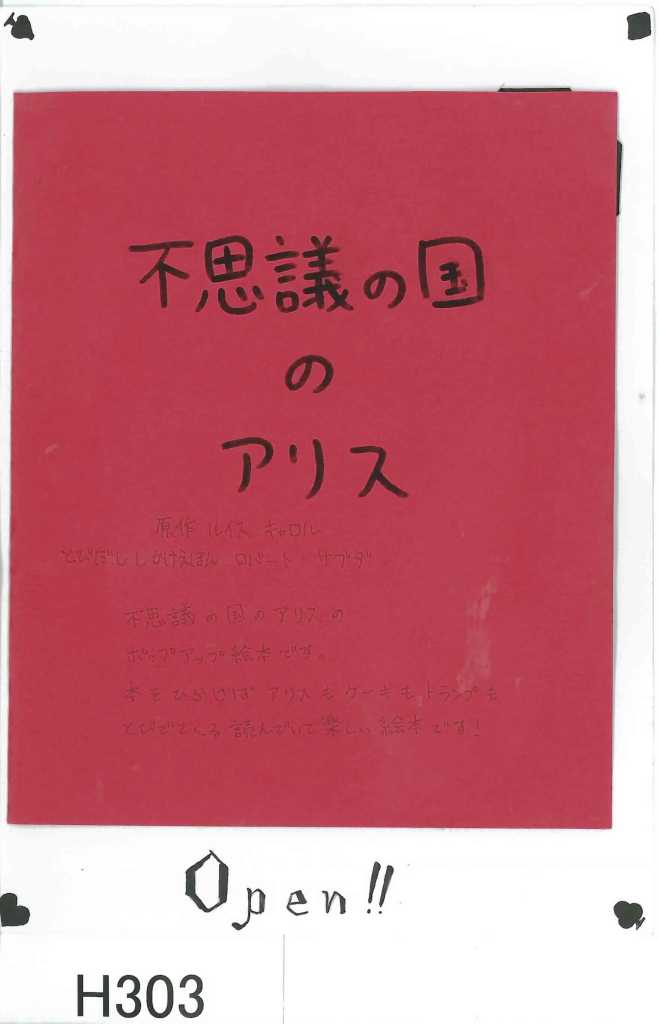 不思議の国
の
アリス
原作 ルイス キャロル
とびだししかけえほん ロバート・サブダ
不思議の国のアリスの
ポップアップ絵本です。
本をひらけば アリスも ケーキも トランプも
とびでてくる 読んでいて 楽しい 絵本です!
Open!!
H303